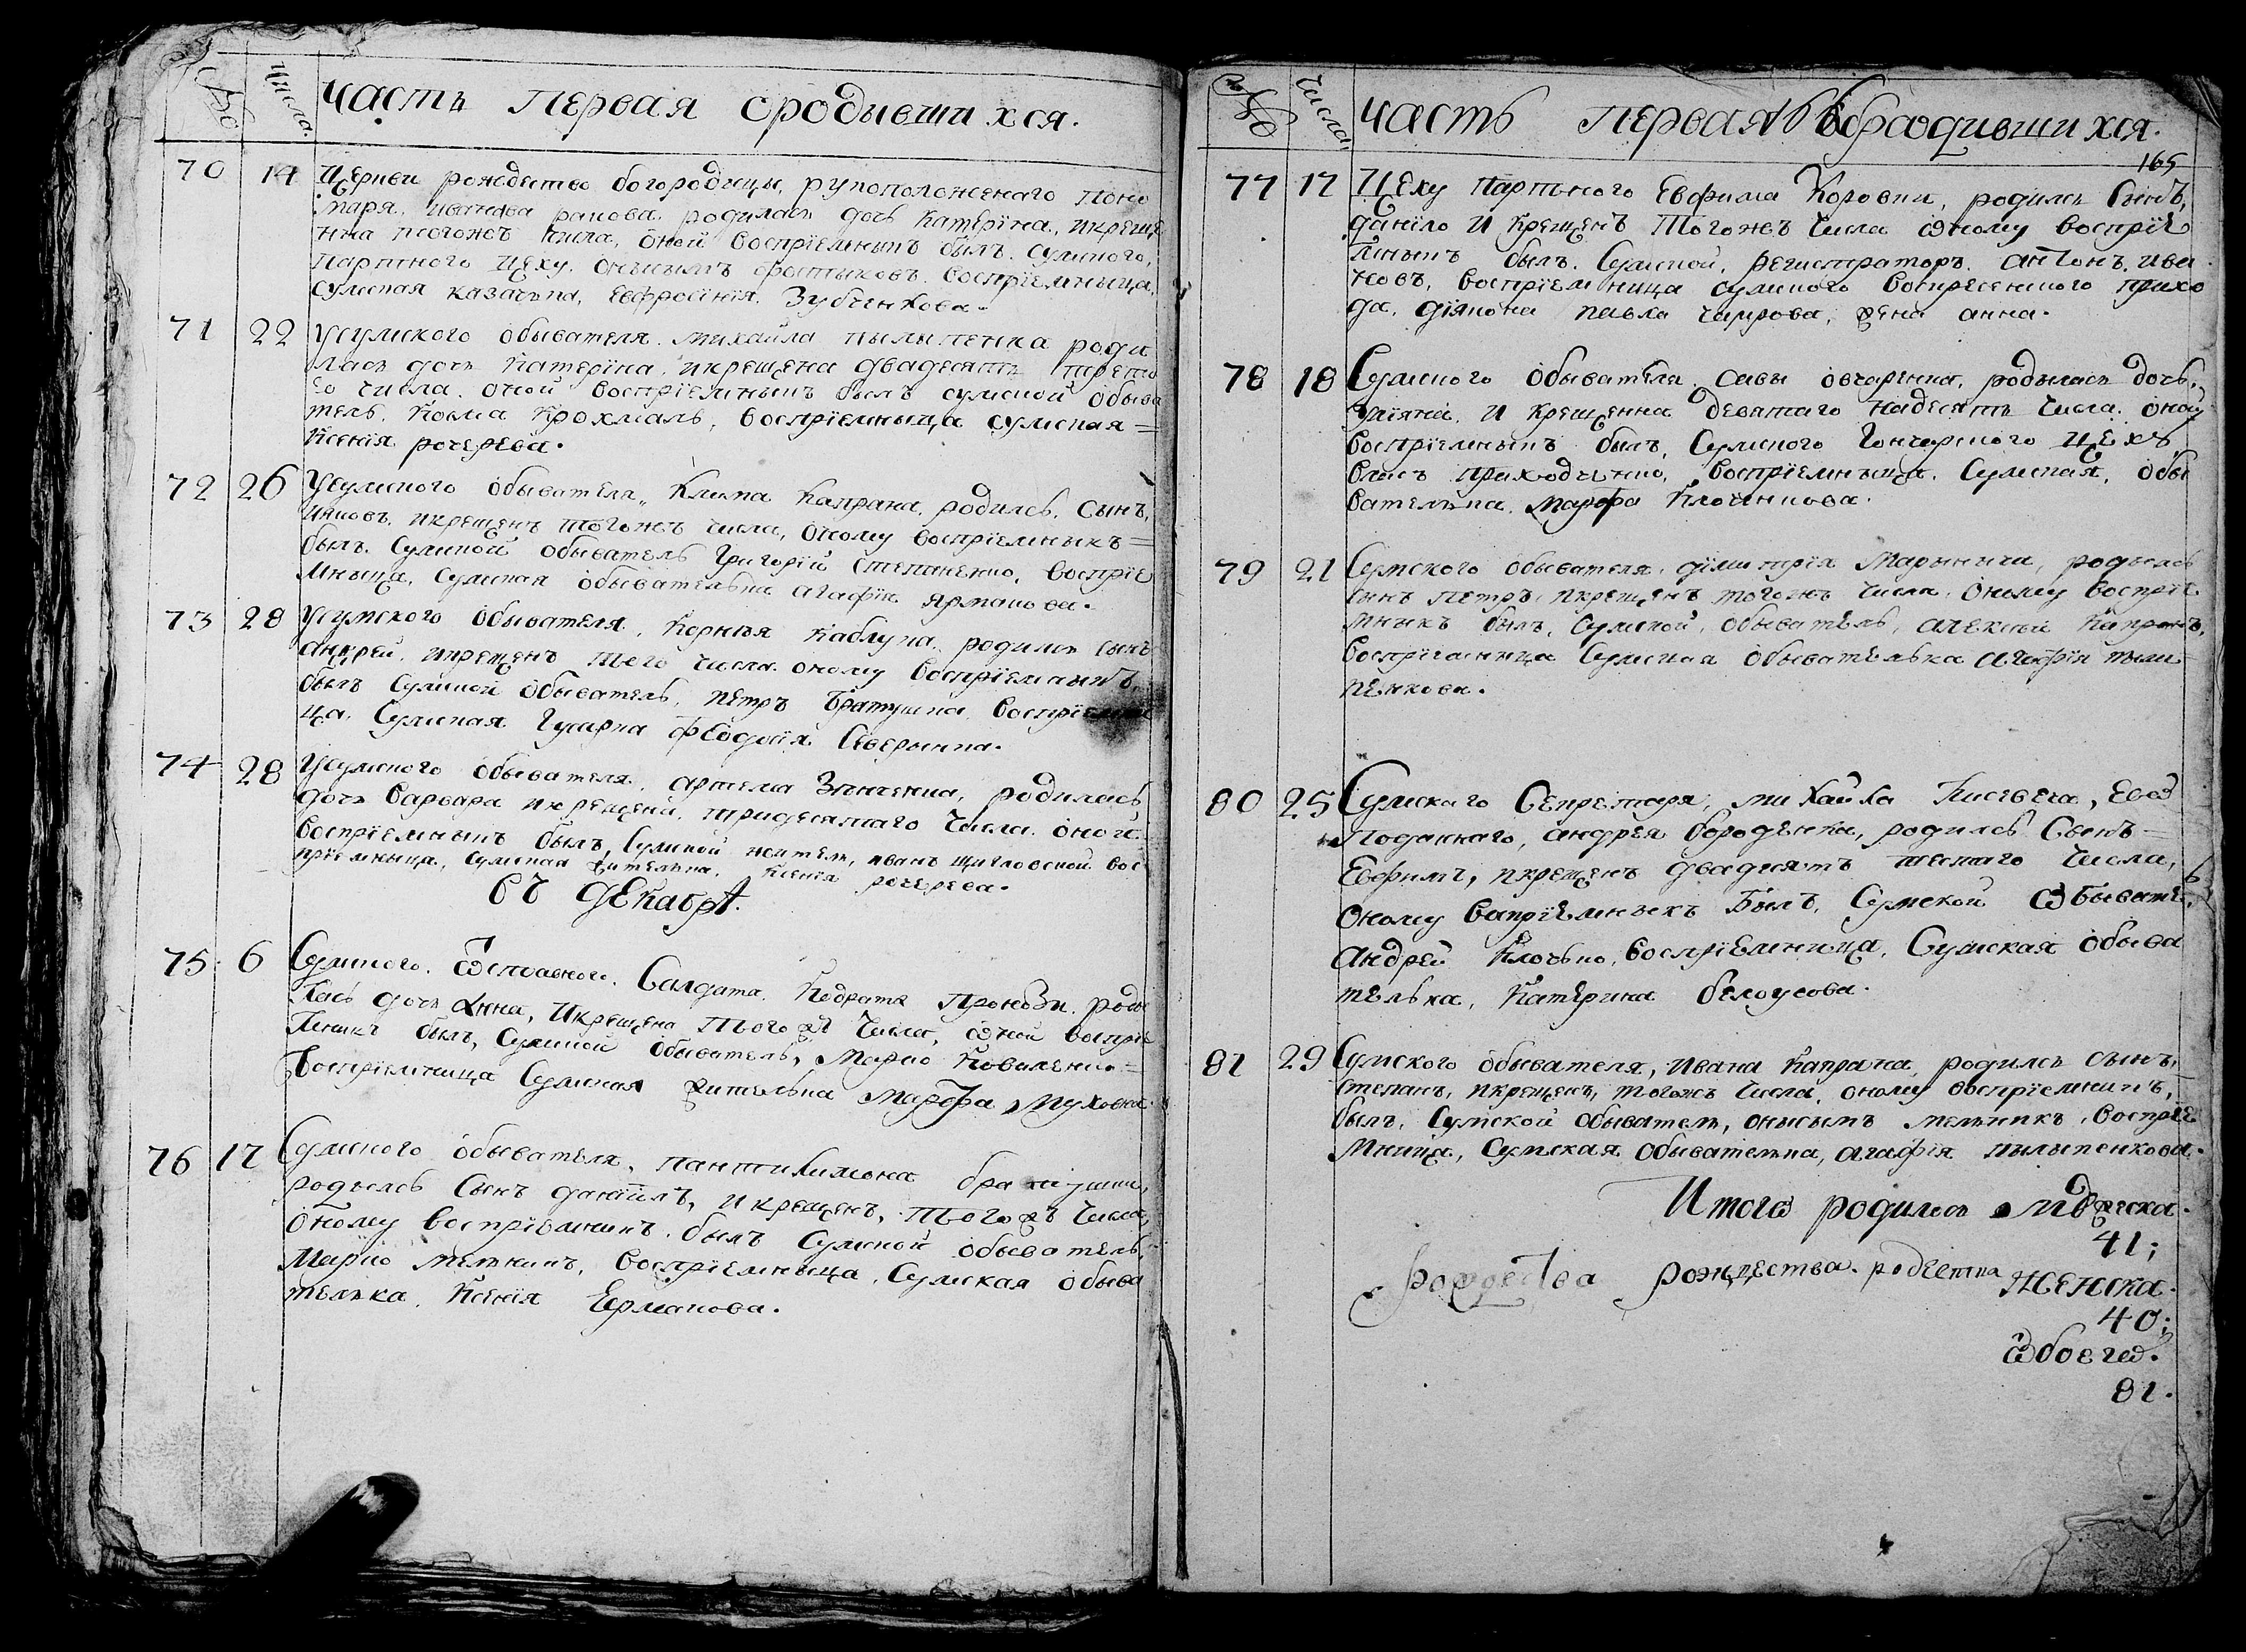 №
Числа.
Часть первая ородывшихся.
70 14 Церкви рождество богородицы, рукоположенаго поно
маря, иванова родилась дочь катерїна, икреще
нна тогожъ числа, оной восприемныкъ былъ сумского,
Партного цеху. воспрїемныца,
сумская казачька, Евфросїнїя Зубченкова.
71 22 Усумского обывателя михайла пылыпенка роди
лась дочь Катерїна, икрещена двадесять трети
го числа. оной воспрїемныкъ былъ сумской обыва
тель, Косма Крохмаль, воспрїемныца сумская=
Ксенїя рочерева.
72 26 Усумского обывателя, Клима Капрана, родилсь, сынъ,
Иаковъ, икрещенъ тогожъ числа, оному воспрїемныкъ=
былъ. Сумской обыватель Григорїй Степаненко, воспрїе
мныца, сумская обывателька агафїя ярмакова.
73 28 Усумского обывателя, Корнѣя Каблука, родилсь сынъ
андрей, икрещенъ того числа. оному воспрїемныкъ,
былъ Сумской обыватель, петръ братушка, воспрїемны
ца, Сумская Гусарка Феодосїя Северынка.
74 28 Усумского обывателя, артема Зѣнченка, родилась
дочь варвара икрещена, тридесятаго числа. оной
воспрїемныкъ былъ, Сумской жытель, иванъ щигловской вос
прїемныца, сумская жителька, Ксенїя рочерева.
въ декабрѣ.
75 6 Сумского, Ѿставного, Салдата, Кодрата Пронози, роди
лась дочь анна, Икрещена того ж числа, ѡной воспрїе
мникъ былъ, Сумской обыватель, Марко Коваленко=
Воспрїемница Сумская жителька Марфа Муховна.
76 17 Сумского обывателя, пантилимона братушки,
родылсь Сынъ данїилъ, и крещенъ, того жъ числа,
Оному воспрїемникъ былъ Сумской обыватель,
Марко мелникъ, воспрїемныца, Сумская обыва
телька, Ксенїя Ермакова.
№
Числа.
Часть первая ородившихся.
165
77 17 Цеху Партного Евфима Коровки, родилсь Сынъ,
данїло и крещенъ тогожъ числа ѡному воспрїе
мныкъ былъ. Сумской, регистраторъ антонъ, ива
новъ, воспрїемница сумского воскресенского прихо
да, дїякона павла жена анна.
78 18 Сумского обывателя, савы овчаренка, родылась дочь,
улїяна, и крещенна деватаго надесять числа. оной
воспрїемныкъ былъ, Сумского Гончарского цеха
власъ приходченко, воспрїемныца, Сумская, обы
вателька, Марфа Клочкикова.
79 21 Сумского обывателя, дїмитрїя Марынычи, родылсь
сынъ петръ, икрещенъ тогожъ числа. Оному воспрїе
мныкъ былъ, Сумской, обыватель, алексѣй Капранъ,
воспрїемница Сумская обывателька агафїя пыли
пенкова.
80 25 Сумскаго Секретаря, михайла Кисѣвега, Его
подданнаго, андрея бороденка, родилсь Сынъ-
Евфимъ, икрещенъ двадесять шестаго числа,
Оному вапрїемныкъ былъ, Сумской ѡбыватель,
андрей Клочько, воспрїемница, Сумская обыва
телька, Катерина белоусова.
81 29 Сумского обывателя, ивана Капрана, родилсь сынъ,
степанъ, икрещенъ, тогожъ числа, оному воспрїемникъ,
былъ, Сумской обыватель, онысымъ мелникъ, воспрїе
мница, Сумская обывателька, агафїя пылыпенкова.
Итого родилось мужеска.
41;
рождества рождества. женска.
40;
ѡбоего.
81.